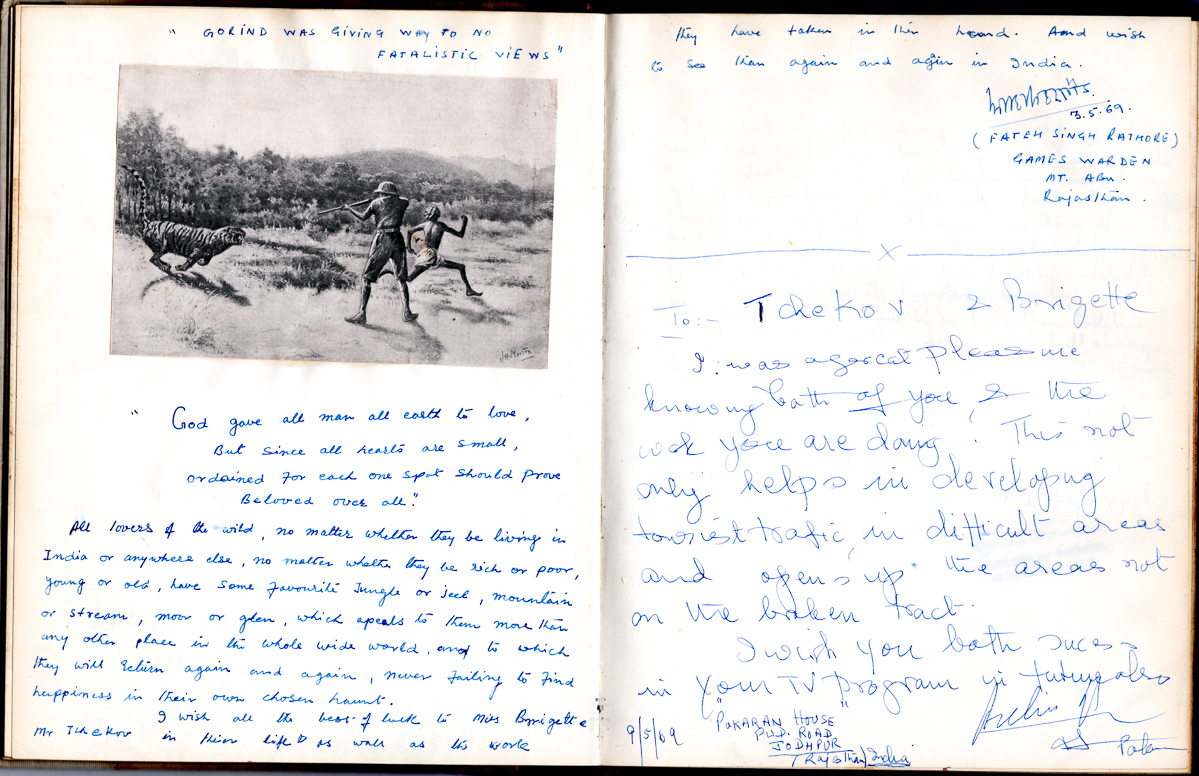 " GORIND WAS GIVING WAY TO NO
FATALISTIC VIEWS"
" God gave all man all earth to love,
But since all hearts are small,
ordained for each one spot should prove
Beloved over all."
All lovers of the wild, no matter whether they be living in
India or anywhere else, no matter whether they be rich or poor,
young or old, have some favourite Jungle or jeel, mountain
or stream, moor or glen, which apeals to them more than
any other place in the whole wide world, and to which
they will return again and again, never failing to find
happiness in their own chosen haunt.
I wish all the best of luck to Miss Brigette
Mr Tchekov in their life as wall as the work
they have taken in their hand. And wish
to see than again and agin in India.
3.5.69.
(FATEH SINGH RATHORE)
GAMES WARDEN
MT. ABU.
Rajasthan.
X
To:- Tchekov & Brigette
I was a great pleasure
knowing both of you & the
work you are doing. This not
only helps in developing
touriest trafic, in difficult areas
and opens up the areas not
on the baken tract.
I wish you both sucess
in your TV program in future also
9/5/69
"POKARAN HOUSE"
P.W.D. ROAD
JODHPUR
(Rajasthan) India